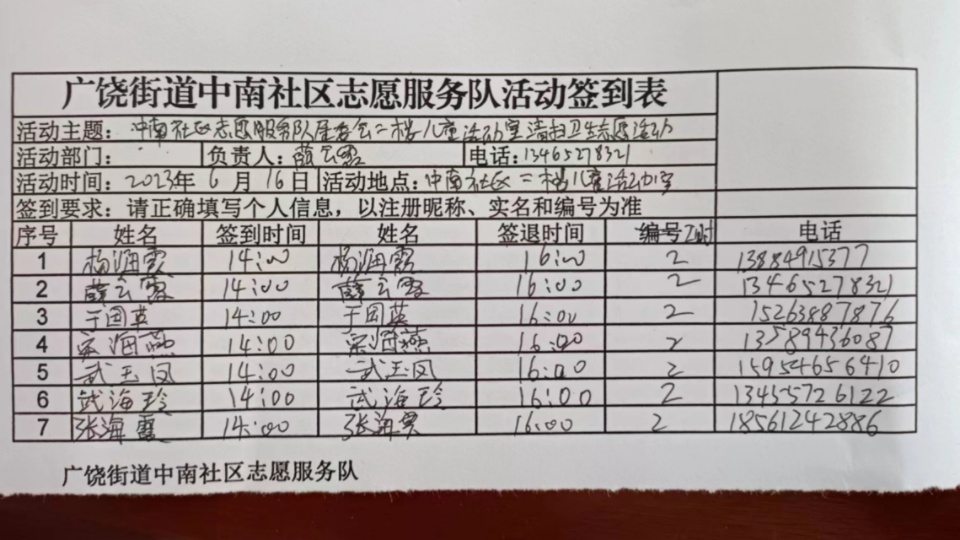 广饶街道中南社区志愿服务队活动签到表
活动主题：中南社区志愿服务队居委会二楼儿童活动室清扫卫生志愿活动
活动部门： 负责人：薛云霞 电话：13465278321
活动时间：2023年 6 月 16 日 活动地点：中南社区二楼儿童活动室
签到要求：请正确填写个人信息，以注册昵称、实名和编号为准
序号 姓名 签到时间 姓名 签退时间 编号工时 电话
1 杨海霞 14:00 杨海霞 16:00 2 13884915377
2 薛云霞 14:00 薛云霞 16:00 2 13465278321
3 于国英 14:00 于国英 16:00 2 15263887876
4 宋海燕 14:00 宋海燕 16:00 2 13589436087
5 武玉凤 14:00 武玉凤 16:00 2 15954656410
6 武海玲 14:00 武海玲 16:00 2 13455726122
7 张海霞 14:00 张海霞 16:00 2 18561242886
广饶街道中南社区志愿服务队